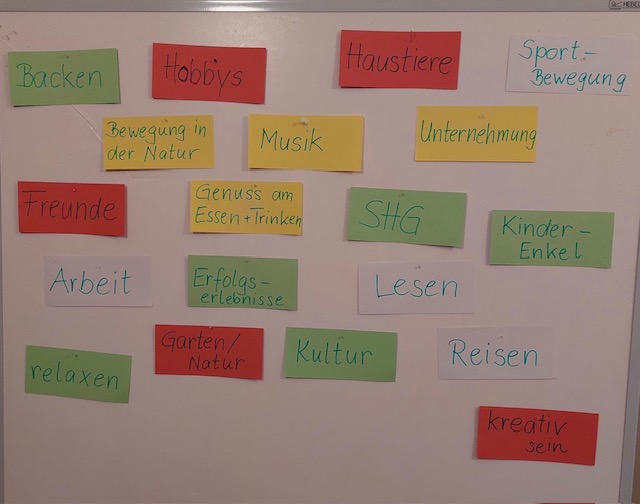 Backen
Hobbys
Haustiere
Sport-
Bewegung
Bewegung in
der Natur
Musik
Unternehmung
Freunde
Genuss am
Essen+Trinken
SHG
Kinder-
Enkel
Arbeit
Erfolgs-
erlebnisse
Lesen
relaxen
Garten/
Natur
Kultur
Reisen
kreativ
sein